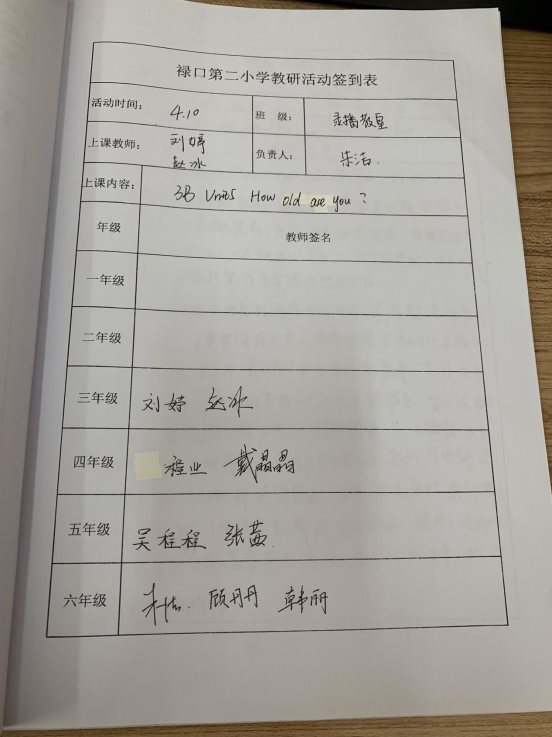 禄口第二小学教研活动签到表
活动时间： 4.10 班 级： 录播教室
上课教师： 刘婷 赵冰 负责人： 朱洁.
上课内容： 3B Unit5 How old are you ?
年级 教师签名
一年级
二年级
三年级 刘婷 赵冰
四年级 程业 戴晶晶
五年级 吴程程 张茜
六年级 朱洁. 顾丹丹 韩丽